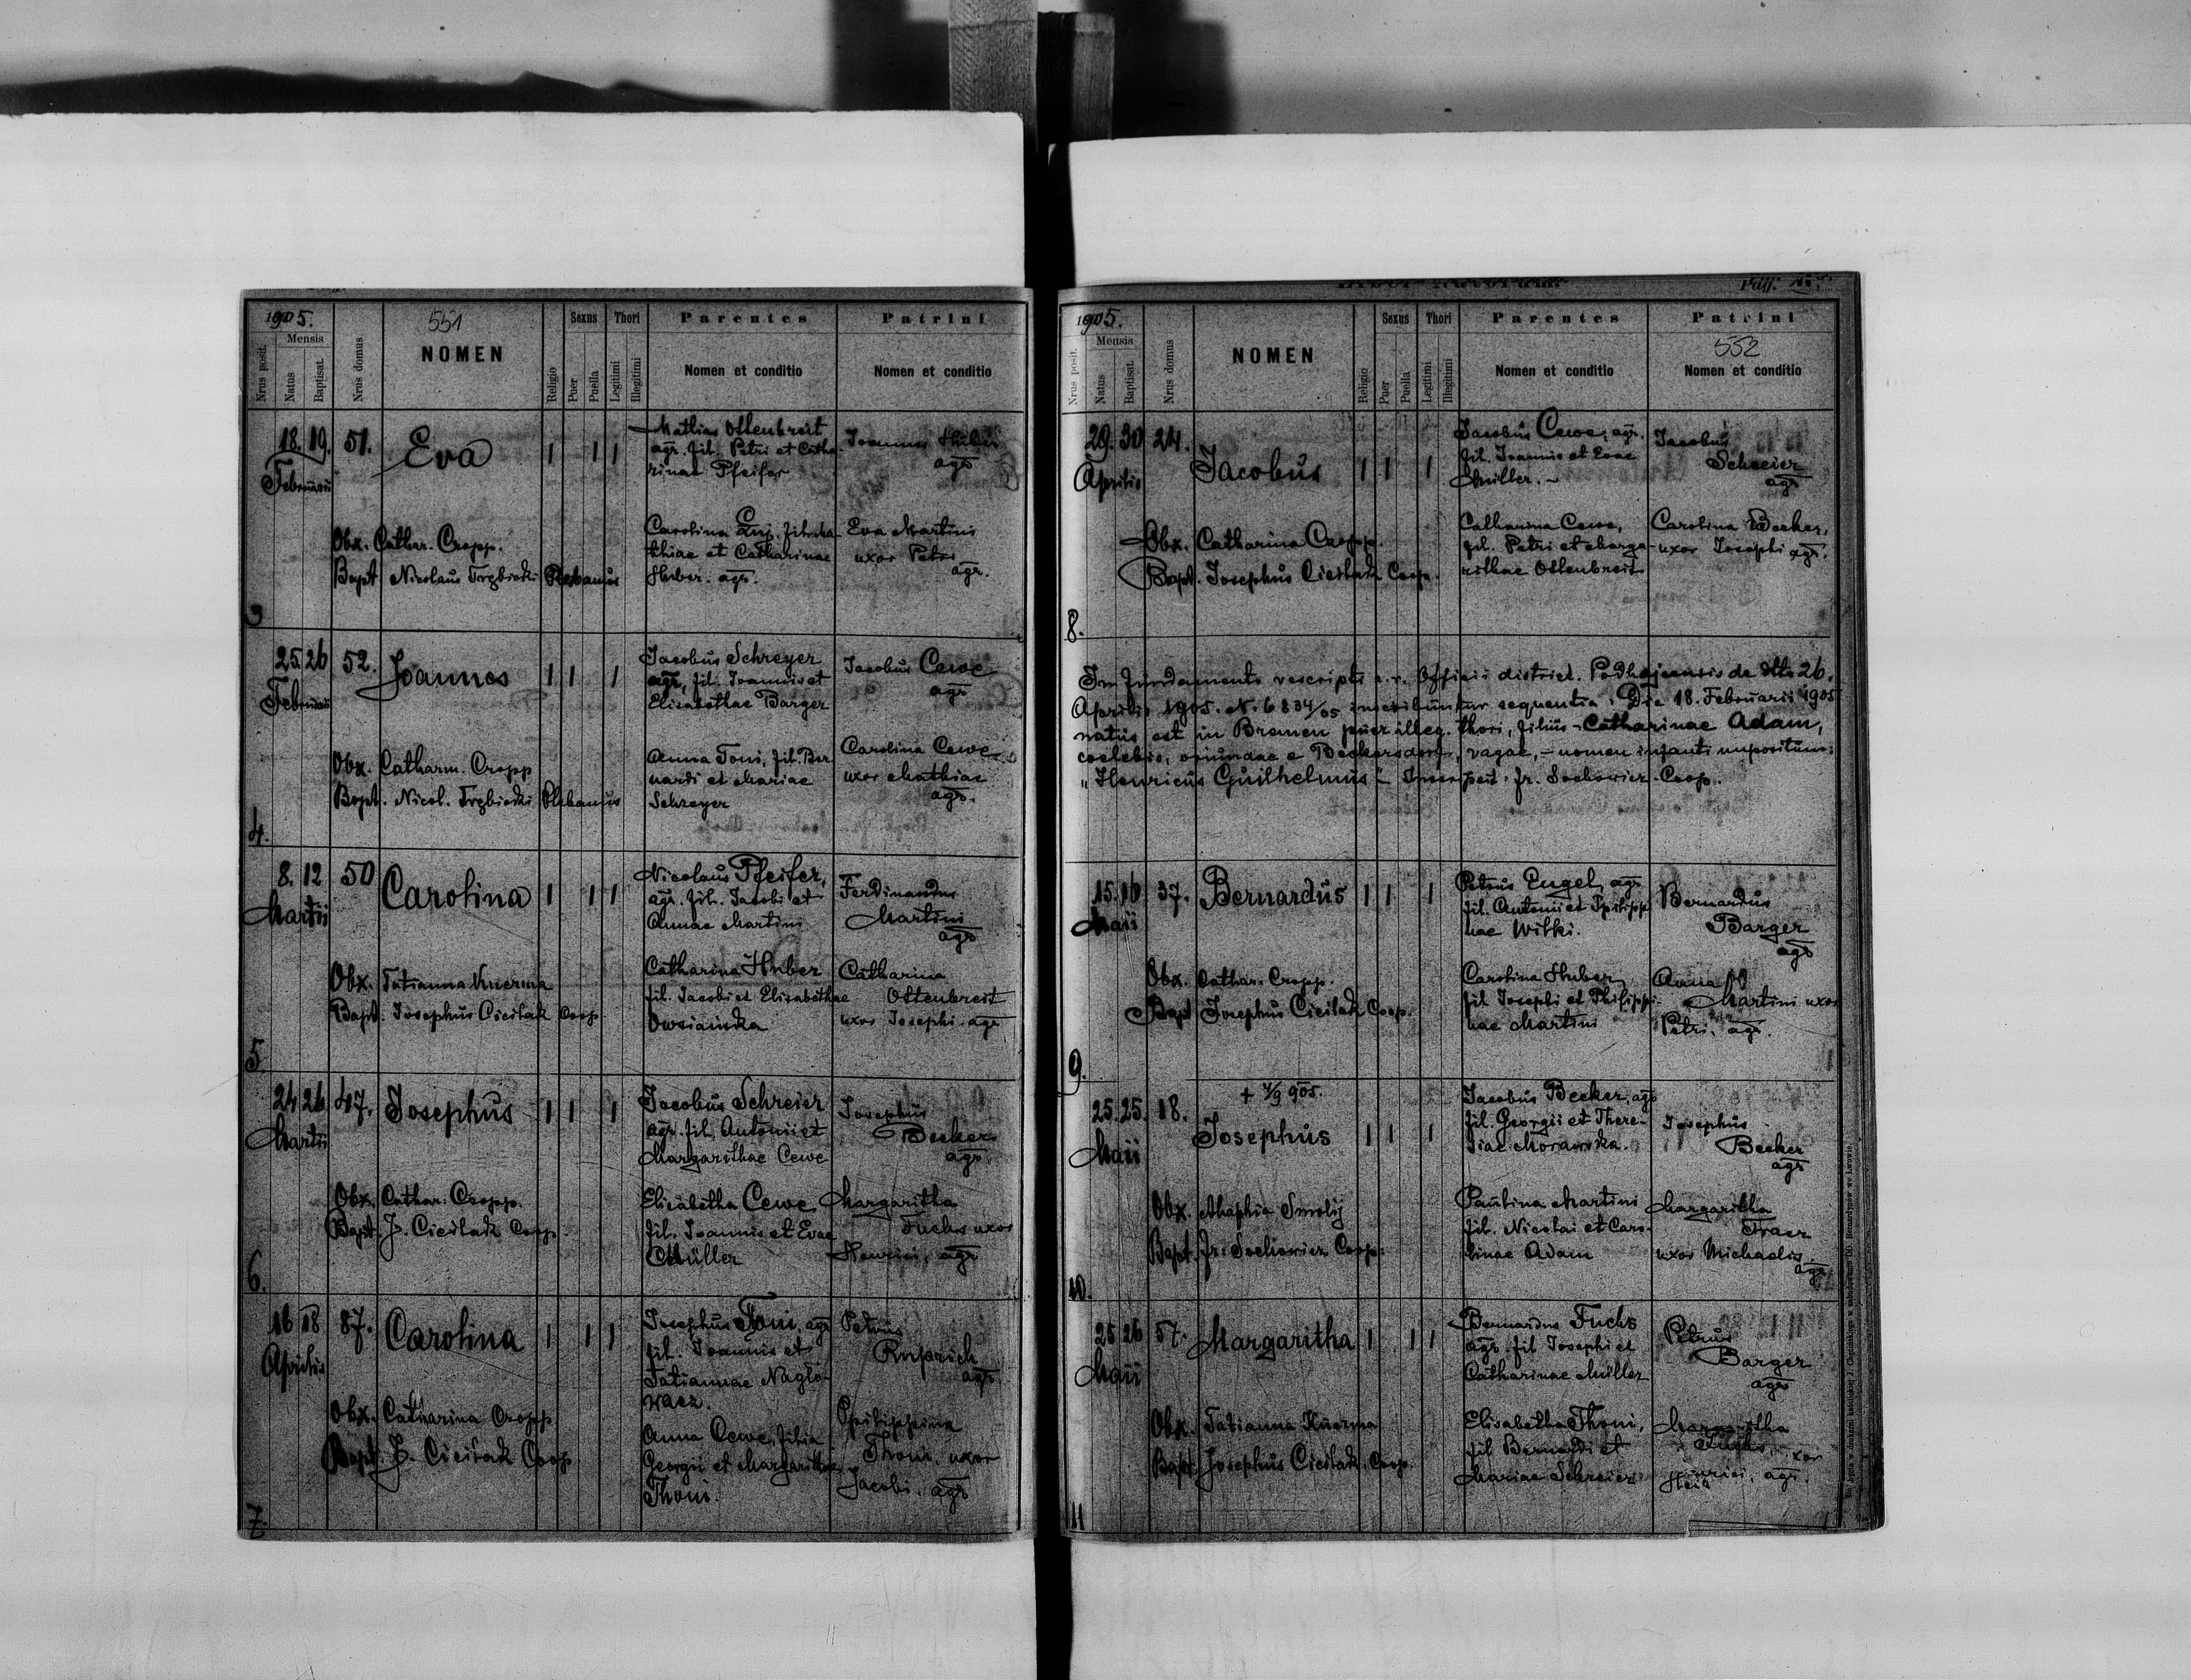 1905.
551
Mensis
Nrus posit.
Natus
Baptisat.
Nrus domus
NOMEN
Religio
Sexus
Puer
Puella
Thori
Legitimi
Illegitimi
Parentes
Nomen et conditio
Patrini
Nomen et conditio
3
18. 19. Februarii
51.
Eva
1 1 1
Mathias Ottenbreit
agr. fil. Petri et Catha-
rinae Pfeifer
Joannes Huber
agr
Obx. Cathar. Cropp.
Bapt Nicolaus Trzbiecki Plebanus
Carolina fil. Ma-
thiae et Catharinae
Huber. agr.
Eva Martini
uxor Petri
agr.
4.
25. 26 Februarii
52.
Joannes
1 1 1
Jacobus Schreyer
agr, fil. Joannis et
Elisabethae Barger
Jacobus Cewe
agr
Obx. Catharin. Cropp
Bapt. Nicol. Trzbiecki Plebanus
Anna Toni, fil. Ber
nardi et Mariae
Schreyer
Carolina Cewe
uxor Mathiae
agr.
5
8. 12 Martii
50
Carolina
1 1 1
Nicolaus Pfeifer,
agr. fil. Jacobi et
Annae Martini
Ferdinandus
Martini
agr
Obx. Tatianna Kuerma
Bapt. Josephus Cicilak Coop
Catharina Huber
fil. Jacobi et Elisabethae
Owsianska
Catharina
Ottenbreit
uxor Josephi agr
6.
24 26 Martii
47.
Josephus
1 1 1
Jacobus Schreier
agr. fil. Antonii et
Margarithae Cewe
Josephus
Becker
agr.
Obx. Cathar. Cropp.
Bapt. J. Cicilak Coop.
Elisabetha Cewe
fil. Joannis et Evae
Müller
Margaritha
Fuchs uxor
Henrici, agr
7.
16 18 Aprilis
87.
Carolina
1 1 1
Josephus Toni, agr
fil. Joannis et
Tatiannae Naglo-
wacz.
Petrus
Ruprich
agr
Obx. Catharina Cropp
Bapt. J. Cicilak Coop
Anna Cewe, filia
Georgii et Margarithae
Thoni.
Philippina
Thoni, uxor
Jacobi. agr
1905.
Mensis
Nrus posit.
Natus
Baptisat.
Nrus domus
NOMEN
Religio
Sexus
Puer
Puella
Thori
Legitimi
Illegitimi
Parentes
Nomen et conditio
Patrini
552
Nomen et conditio
8.
29. 30 Aprilis
24.
Jacobus
1 1 1
Jacobus Cewe, agr.
fil. Joannis et Evae
Müller.
Jacobus
Schreier
agr
Obx. Catharina Cropp.
Bapt. Josephus Cicilak Coop.
Catharina Cewe,
fil. Petri et Marga-
rithae Ottenbreit
Carolina Becker,
uxor Josephi agr.
In fundamento rescripti c.r. Officii district. Podhajcensis de dtto 26.
Aprilis 1905. N. 6834/05 inscribuntur sequentia: Die 18. Februarii 1905
natus est in Bremen puer illeg. thori, filius Catharinae Adam,
coelebis, oriundae e Beckersdorf, vagae, - nomen infanti impositum:
"Henricus Guilhelmus" - Fr. Sochowicz - Coop.
9.
15. 16 Maii
37.
Bernardus
1 1 1
Petrus Engel, agr
fil. Antonii et Philippi
nae Wilki.
Bernardus
Barger
agr
Obx. Cathar. Cropp.
Bapt Josephus Cicilak Coop.
Carolina Huber
fil Josephi et Philippi-
nae Martini
Anna
Martini uxor
Petri, agr.
10.
25. 25. Maii
18.
+ 4/9 905.
Josephus
1 1 1
Jacobus Becker, agr
fil. Georgii et There-
siae Morawska
Josephus
Becker
agr
Obx. Ahaphia Smolij
Bapt. Fr. Sochowicz Coop.
Paulina Martini
fil. Nicolai et Caro-
linae Adam
Margaritha
Tracz
uxor Michaelis
agr.
11
25 26 Maii
57.
Margaritha
1 1 1
Bernardus Fuchs
agr. fil Josephi et
Catharinae Müller
Petrus
Barger
agr
Obx. Tatianna Kuerma
Bapt. Josephus Cicilak. Coop.
Elisabetha Thoni,
fil Bernardi et
Mariae Schreier
Margaritha
Fuchs, uxor
Heinrici, agr.